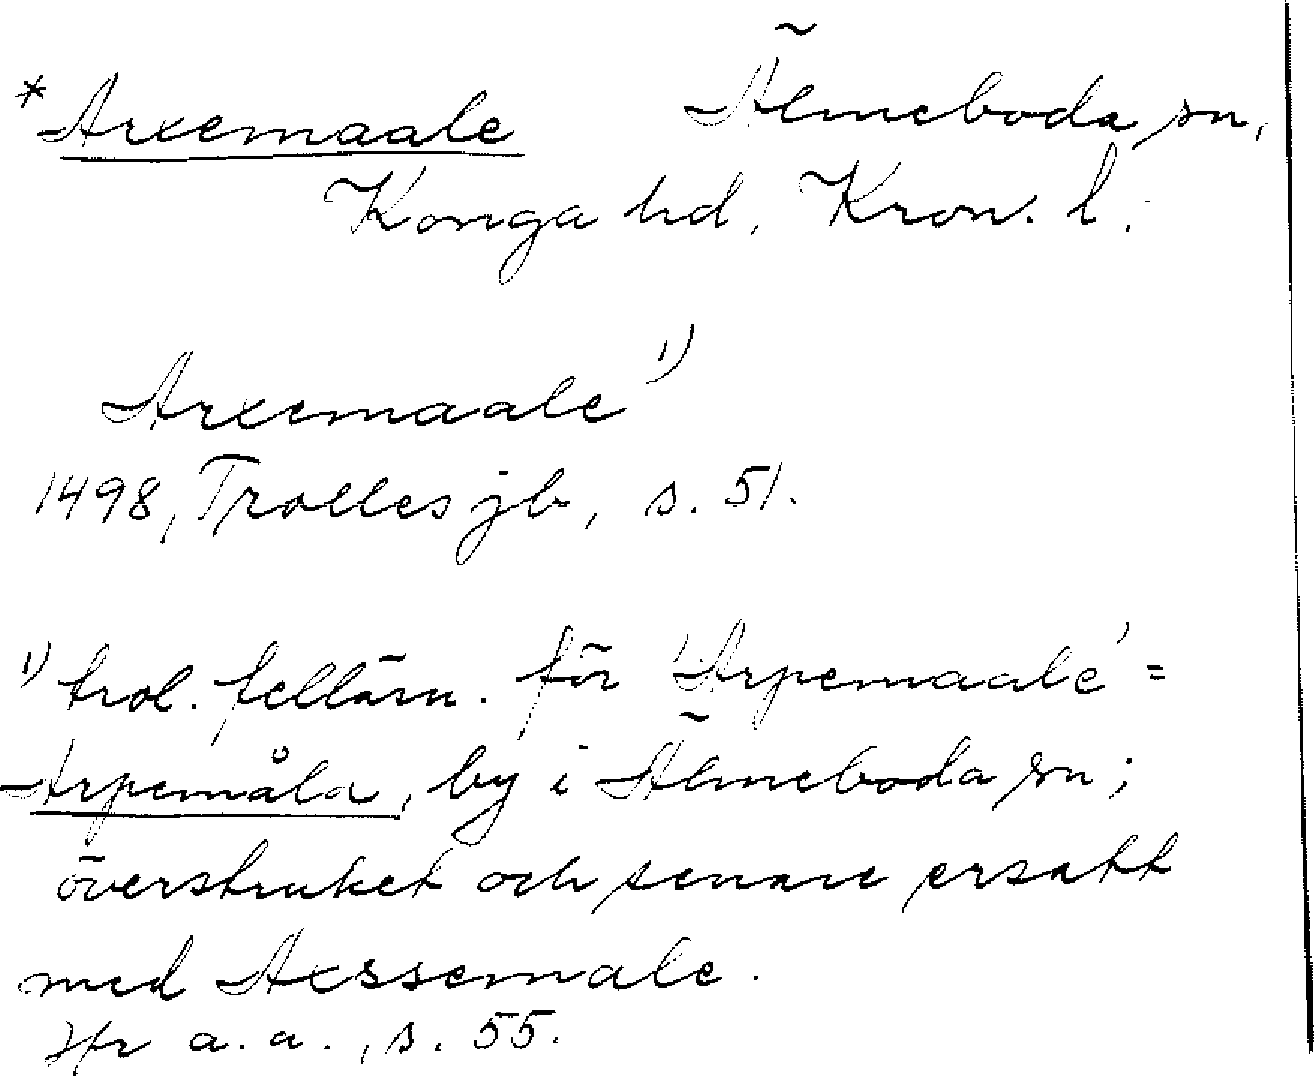 *Arxemaale Älmeboda sn,
Konga hd. Kron. l.
Arxemaale 1)
1498, Trolles jb, s. 51.
1) trol. felläsn. för 'Arpemaale' =
Arpemåla, by i Älmeboda sn;
överstruket och senare ersatt
med Axssemale.
Jfr a.a., s. 55.